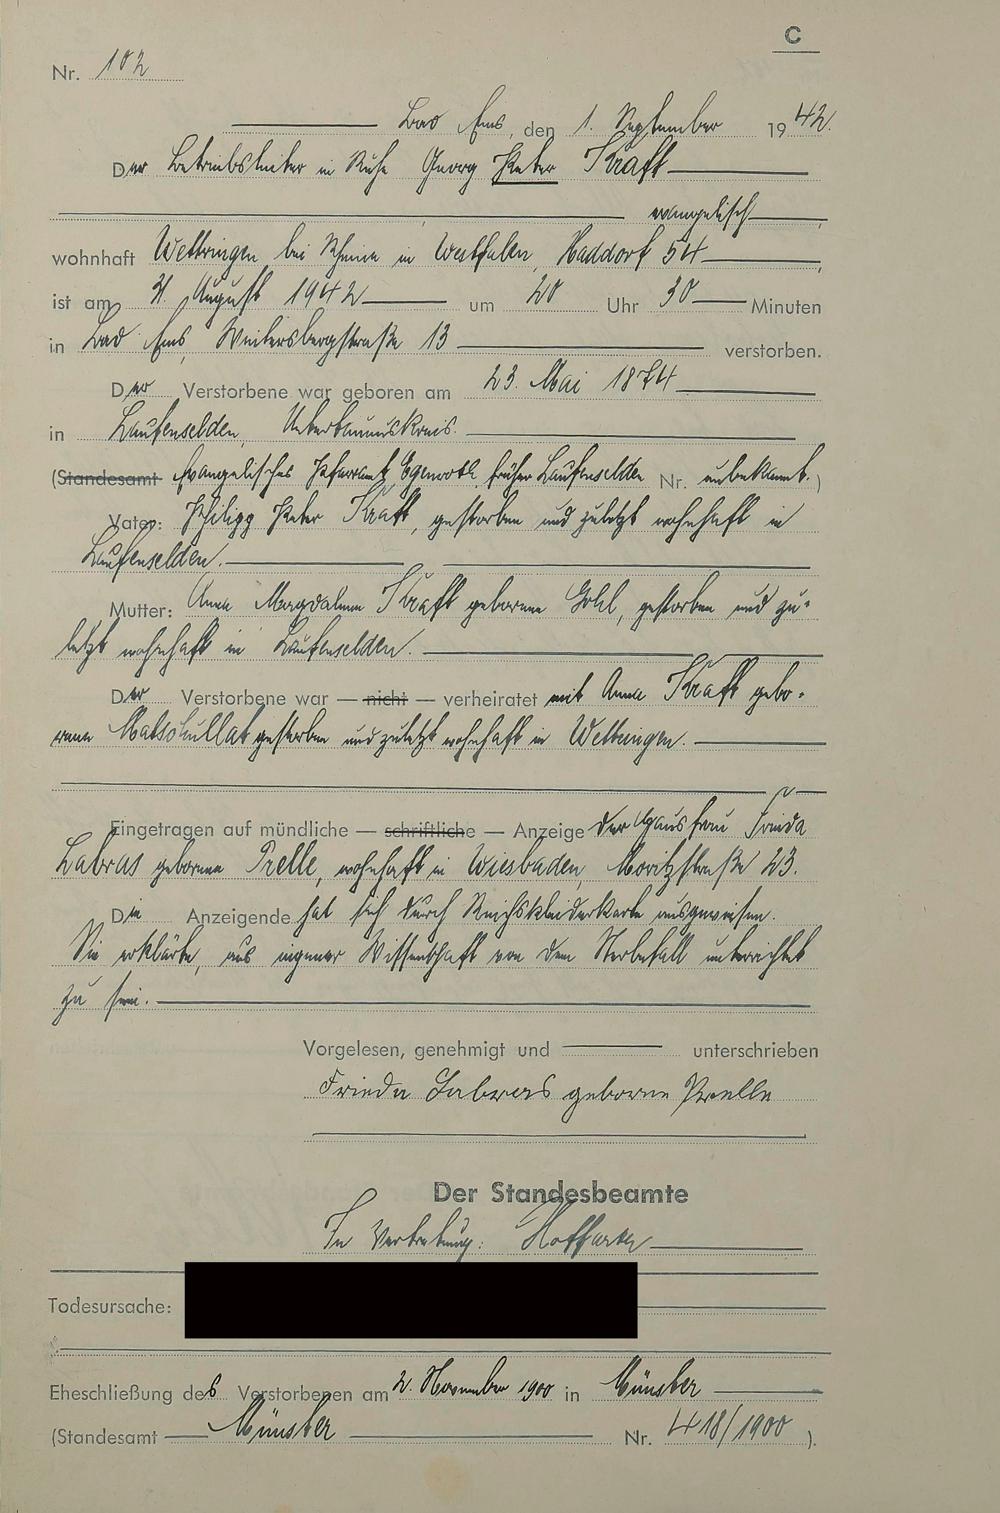 C
Nr. 102
Bad Ems, den 1. September 1942.
Der Betriebsleiter in Ruhe Georg Peter Kraft
evangelisch
wohnhaft Wettringen bei Rheine in Westfalen, Haddorf 54
ist am 31. August 1942 um 20 Uhr 30 Minuten
in Bad Ems, Weitersbergstraße 13 verstorben.
Der Verstorbene war geboren am 23. Mai 1874
in Laufenselden, Untertaunuskreis.
(Standesamt Evangelisches Pfarramt Egenroth, früher Laufenselden Nr. unbekannt.)
Vater: Philipp Peter Kraft, gestorben und zuletzt wohnhaft in
Laufenselden.
Mutter: Anna Magdalena Kraft geborene Gohl, gestorben und zu-
letzt wohnhaft in Laufenselden.
Der Verstorbene war — nicht — verheiratet mit Anna Kraft gebo-
rene Matschullat gestorben und zuletzt wohnhaft in Wettringen.
Eingetragen auf mündliche — schriftliche — Anzeige der Hausfrau Frieda
Labras geborene Prelle, wohnhaft in Wiesbaden, Moritzstraße 23.
Die Anzeigende hat sich durch Reichskleiderkarte ausgewiesen.
Sie erklärte, aus eigener Wissenschaft von dem Sterbefall unterrichtet
zu sein.
Vorgelesen, genehmigt und unterschrieben
Frieda Labras geborne Prelle
Der Standesbeamte
In Vertretung:
Todesursache:
Eheschließung des Verstorbenen am 2. November 1900 in Münster
(Standesamt Münster Nr. 418/1900).